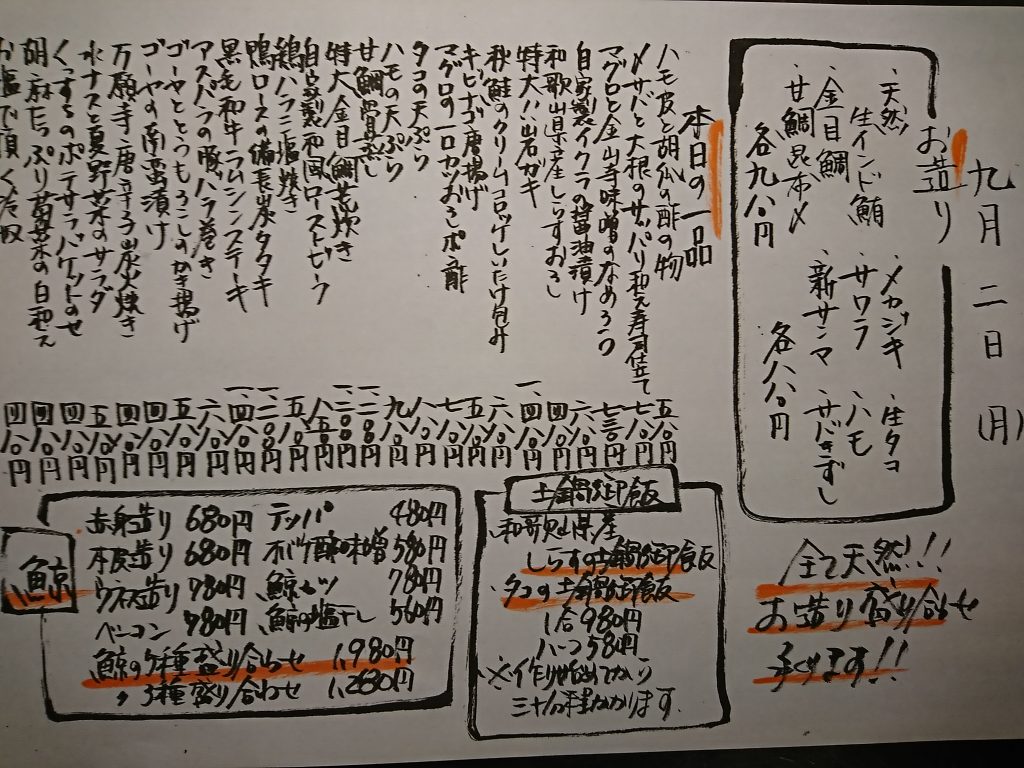 九月二日(月)
お造り
・天然
生インド鮪
・金目鯛
・甘鯛昆布〆
各九八〇円
・メカジキ
・サワラ
・新サンマ
・生タコ
・ハモ
・サバきずし
各八八〇円
全て天然!!
お造り盛り合せ
できます!!
本日の一品
ハモ皮と胡瓜の酢の物 五八〇円
〆サバと大根のサッパリ和え寿司仕立て 七八〇円
マグロと金山寺味噌のなめろう 六八〇円
自家製イクラの醤油漬け 七三〇円
和歌山県産しらすおろし 四八〇円
特大!!岩ガキ
秋鮭のクリームコロッケしいたけ包み 六八〇円
キビナゴ唐揚げ 五八〇円
マグロの一口カツおろしポン酢 七八〇円
タコの天ぷら 八八〇円
ハモの天ぷら 九八〇円
甘鯛骨蒸し
特大金目鯛煮炊き
自家製和風ローストビーフ
鶏ハラミ塩焼き 五八〇円
鴨ロースの備長炭タタキ
黒毛和牛ラムシンステーキ
アスパラの豚バラ巻き 六八〇円
ゴーヤととうもろこしのかき揚げ 五八〇円
ゴーヤの南蛮漬け 四八〇円
万願寺唐辛子炭火焼き 四八〇円
水ナスと夏野菜のサラダ 五八〇円
くんすらのポテサラバゲットのせ 四八〇円
胡麻たっぷり葛菜の白和え 四八〇円
お塩で頂く冷奴 四八〇円
土鍋炊き御飯
和歌山県産
しらすの土鍋炊御飯
タコの土鍋炊御飯
1合980円
ハーフ580円
※作り始めてから
三十分程かかります。
鯨
赤身造り 680円
本皮造り 680円
ウネス造り 980円
ベーコン 980円
テッパ 480円
オバケ酢味噌 580円
鯨ハツ 780円
鯨の塩干し 560円
鯨の5種盛り合わせ 1,980円
〃 3種盛り合わせ 1,280円